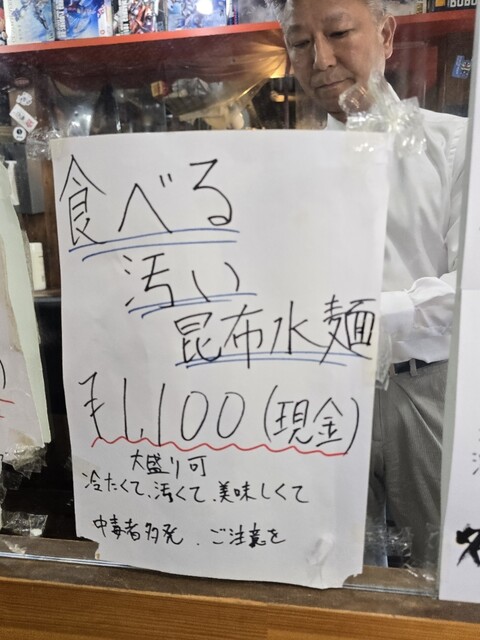 食べる
汚い
昆布水麺
¥1,100(現金)
大盛り可
冷たくて、汚くて、美味しくて
中毒者多発、ご注意を